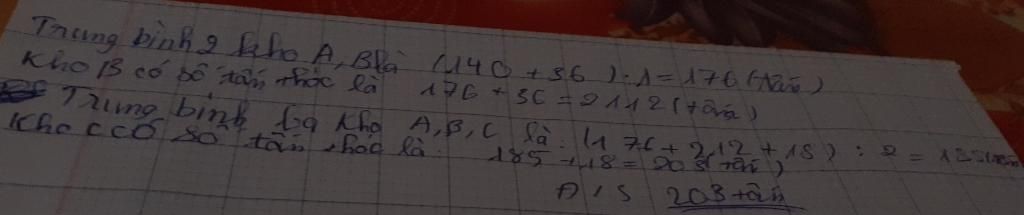 Trung bình 2 kho A, B là (140 + 36) : 1 = 176 (tấn)
Kho B có số tấn thóc là 176 + 36 = 2112 (tấn)
Trung bình ba kho A, B, C là: (176 + 212 + 18) : 2 =
Kho C có số tấn thóc là: 185 + 18 = 203 (tấn)
Đ/S 203 tấn